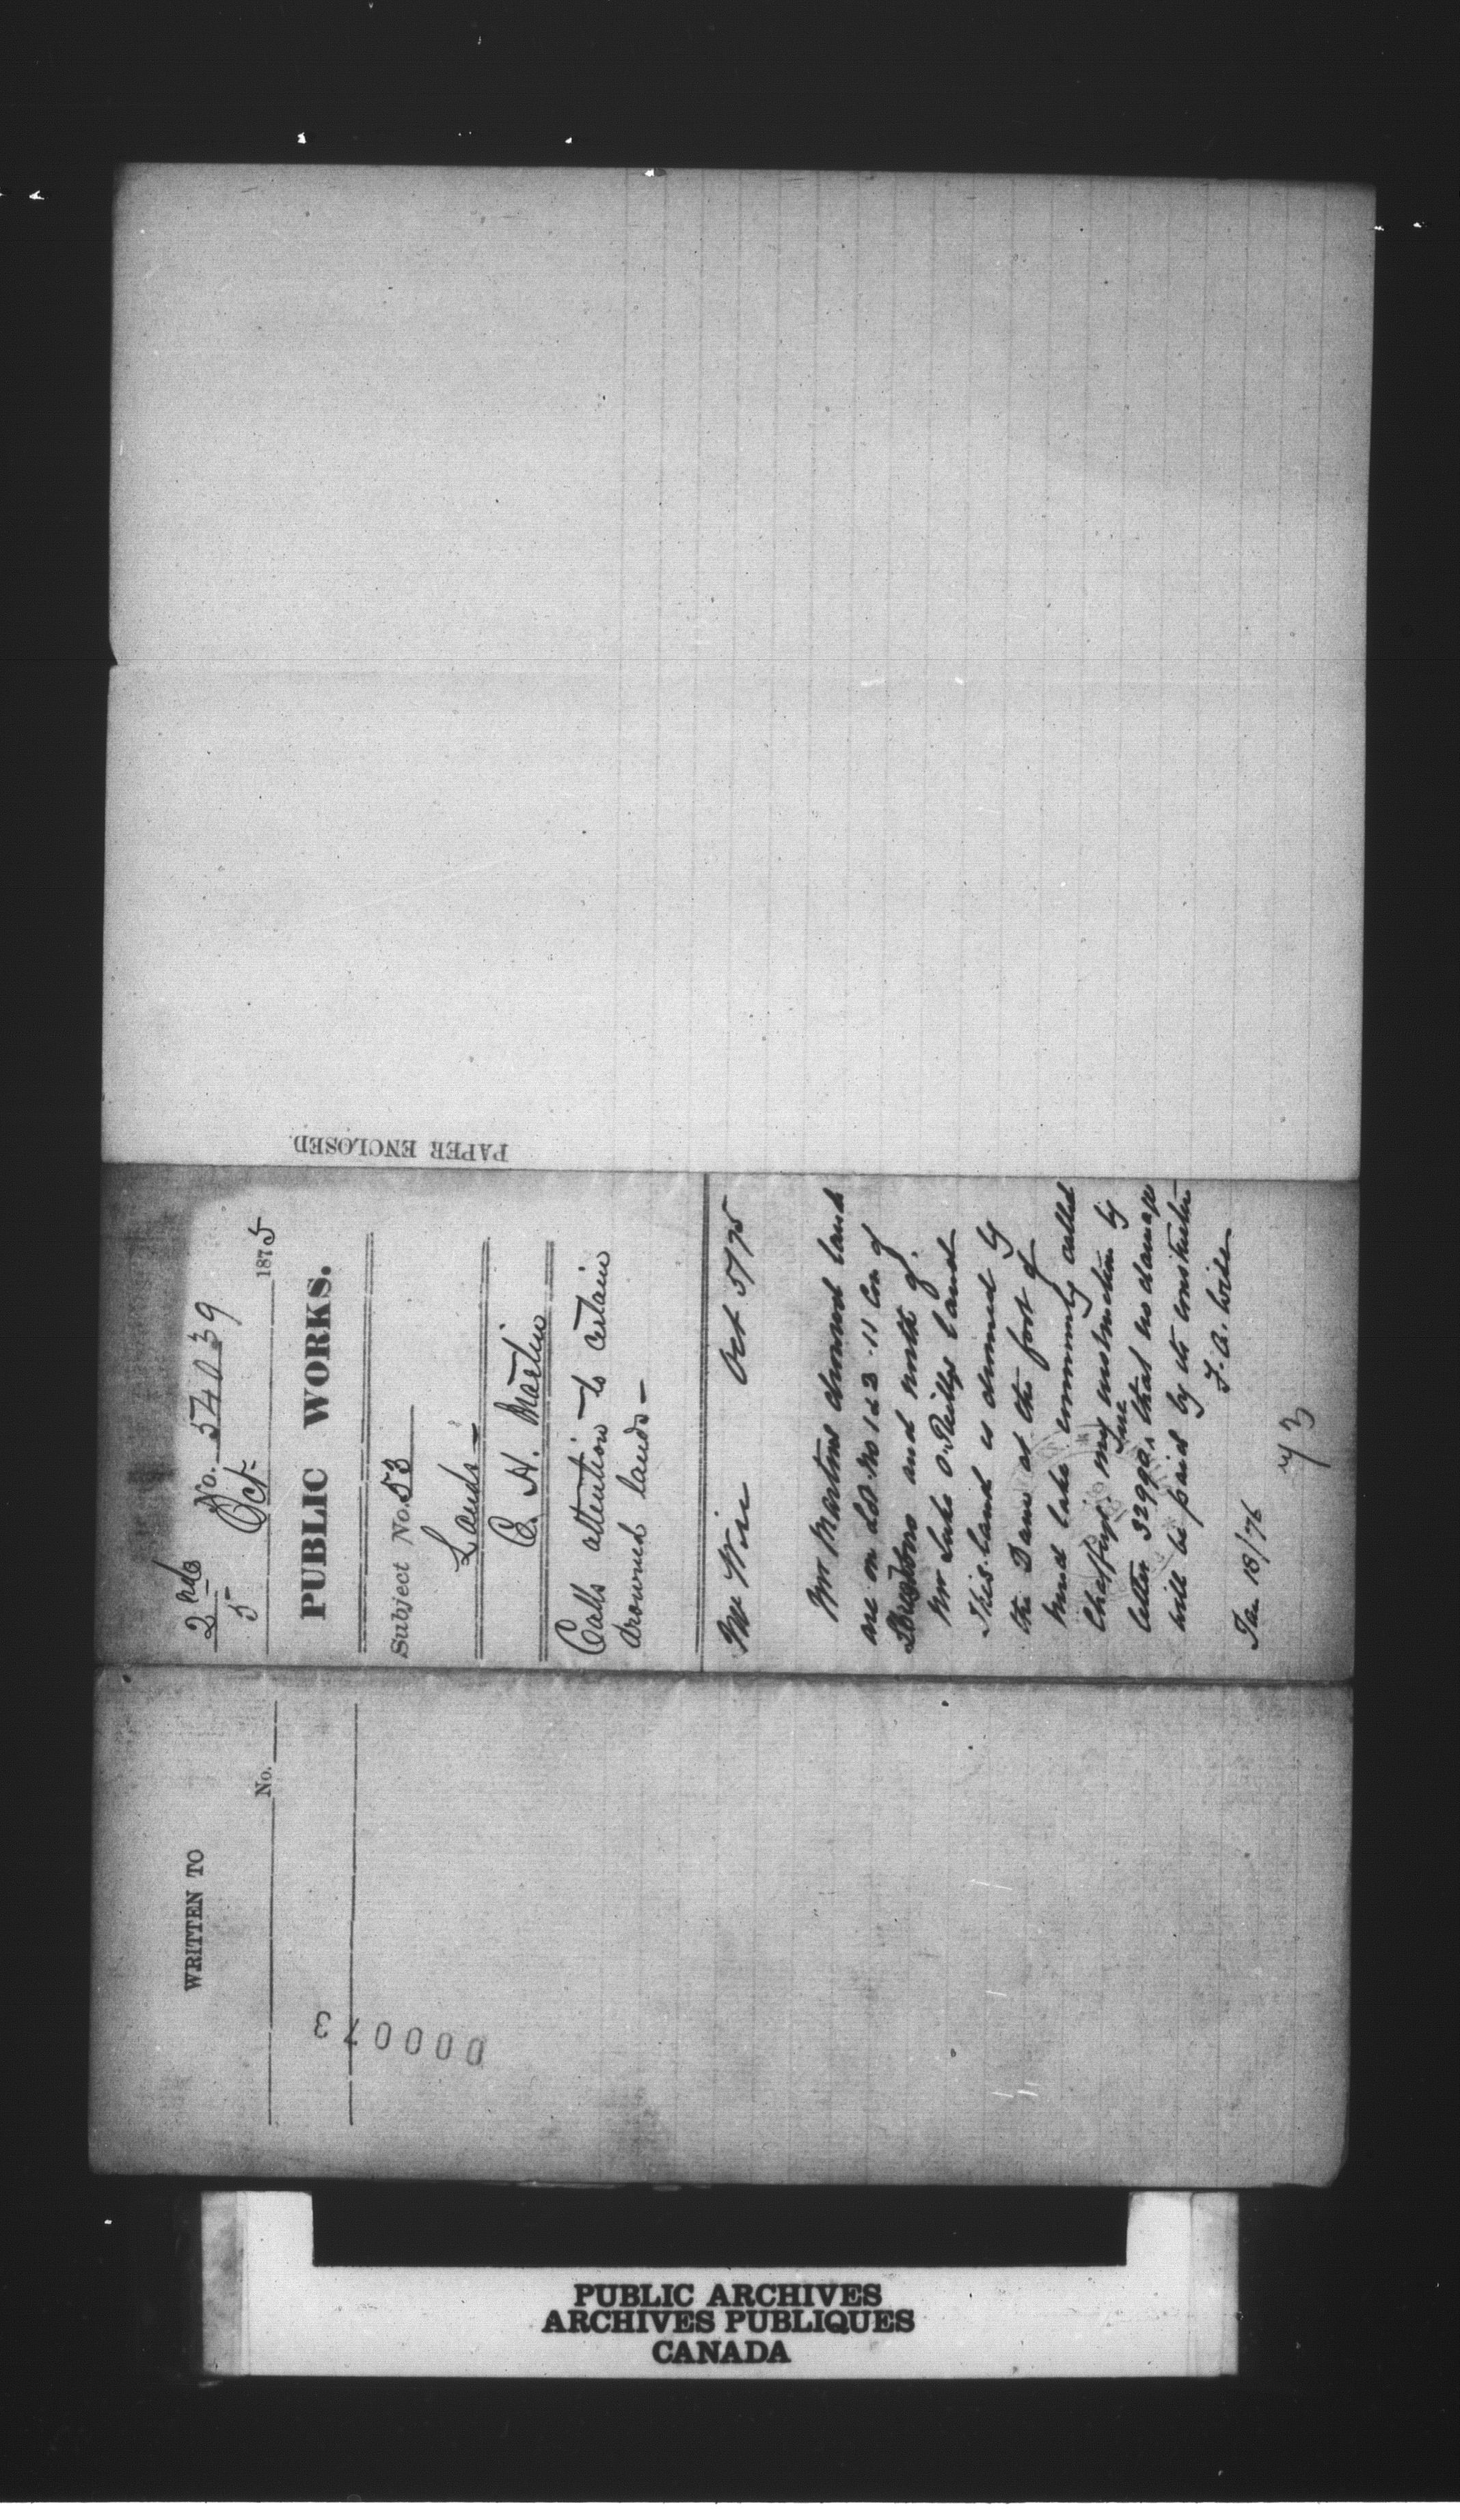 PAPER ENCLOSED
2nd No. 54039
5 Oct. 1875
PUBLIC WORKS.
Subject No. 53
Lands
C. H. Martin
Calls attention to certain
drowned lands
Mr Wise Oct 5/75
Mr Martins drowned land
are on Lot No 1 & 2 · 11 Con of
and north of
Mr Luke O'Reillys land
This land is drowned by
the Dam at the foot of
Mud lake commonly called
Chaffeys. my instruction by
letter 32990, that no damage
will be paid by its construction
F. A. Wise
Jan 18/76
WRITTEN TO
No.
000073
PUBLIC ARCHIVES
ARCHIVES PUBLIQUES
CANADA